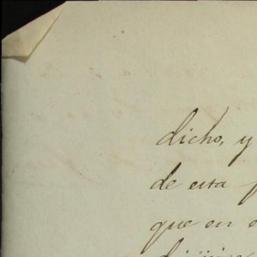 dicho, y
de esta
que en